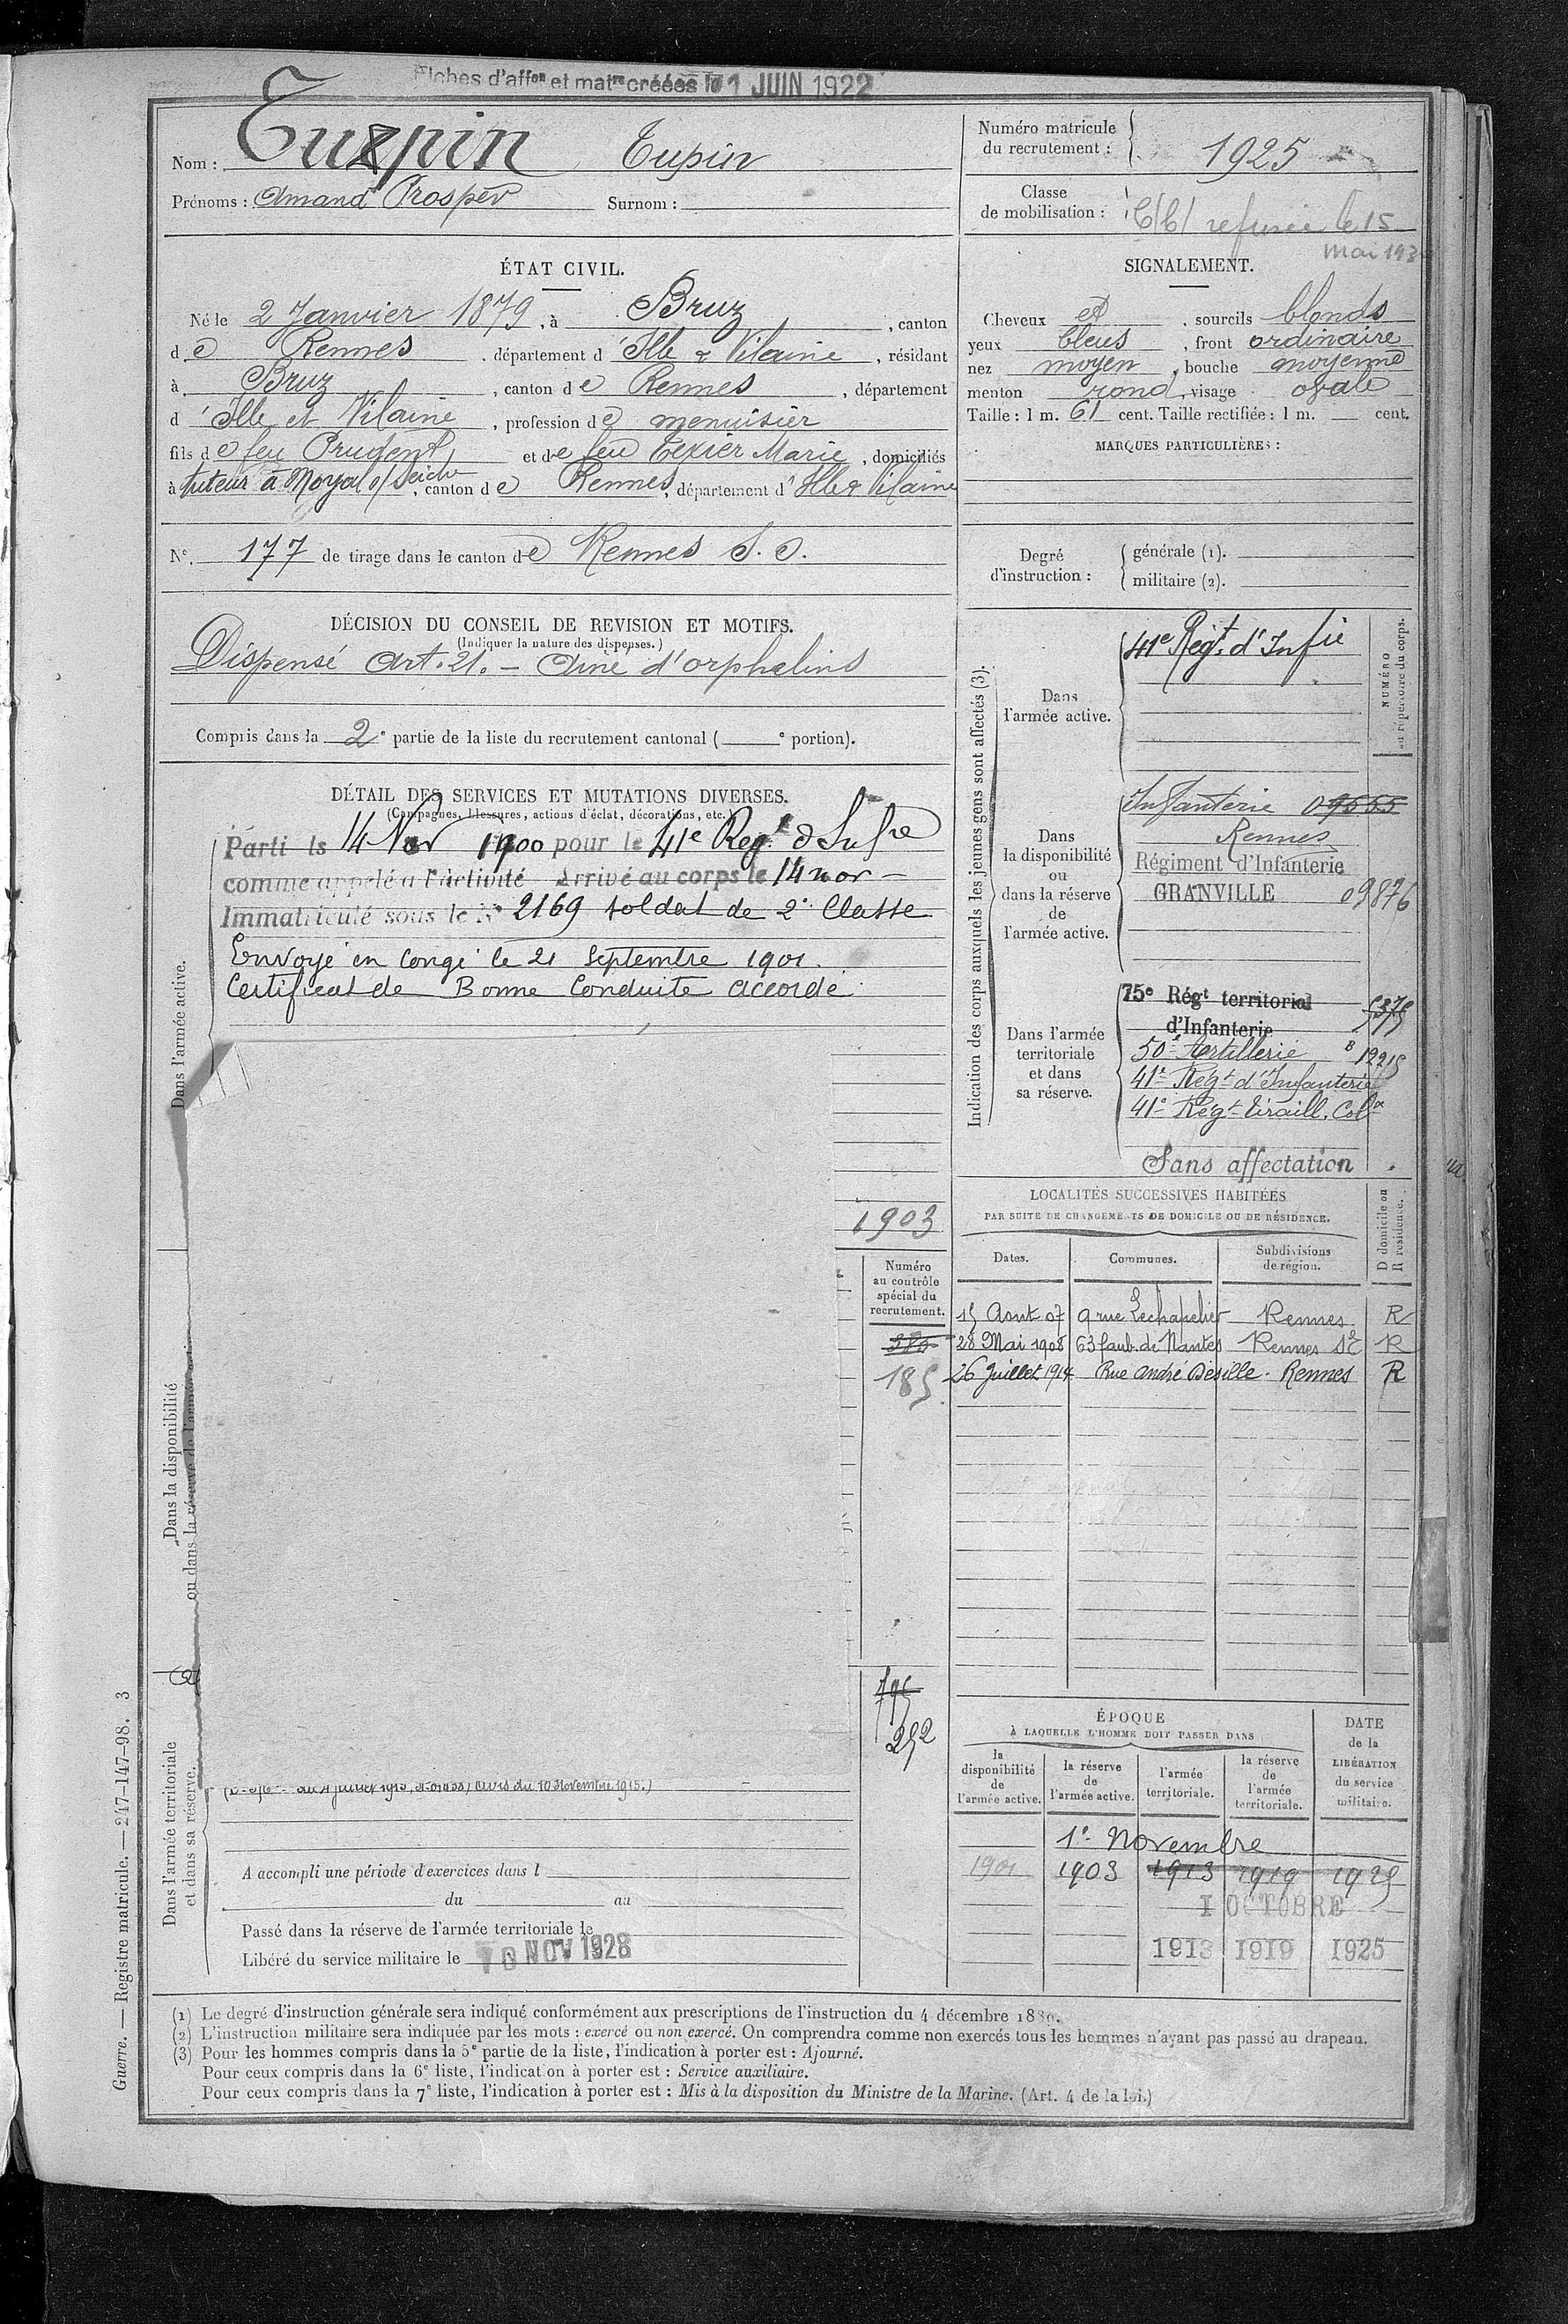 Fiches d'affon et matre créées le 1 JUIN 1922
Nom : Tupin Tupin
Prénoms : Amand Prosper Surnom :
Numéro matricule du recrutement : 1925
Classe de mobilisation : refusée le 15
mai 193
ÉTAT CIVIL.
Né le 2 Janvier 1879, à Bruz, canton
de Rennes, département d'Ille & Vilaine, résidant
à Bruz, canton de Rennes, département
d'Ille et Vilaine, profession de menuisier
fils de feu Prudent et de feu Texier Marie, domiciliés
à tuteur à Noyal s/ Seiche, canton de Rennes, département d'Ille & Vilaine
N° 177 de tirage dans le canton de Rennes S. O.
SIGNALEMENT.
Cheveux et, sourcils blonds
yeux bleus, front ordinaire
nez moyen, bouche moyenne
menton rond, visage ovale
Taille : 1 m. 61 cent. Taille rectifiée : 1 m. — cent.
MARQUES PARTICULIÈRES :
Degré d'instruction : générale (1).
militaire (2).
DÉCISION DU CONSEIL DE REVISION ET MOTIFS.
(Indiquer la nature des dispenses.)
Dispensé Art. 21. - Ainé d'orphelins
Compris dans la 2e partie de la liste du recrutement cantonal ( e portion).
DÉTAIL DES SERVICES ET MUTATIONS DIVERSES.
(Campagnes, blessures, actions d'éclat, décorations, etc.)
Dans l'armée active.
Parti le 14 Nov 1900 pour le 41e Regt d'Infre
comme appelé à l'activité Arrivé au corps le 14 nov -
Immatriculé sous le N° 2169 soldat de 2e Classe
Envoyé en congé le 21 Septembre 1901.
Certificat de Bonne Conduite accordé
1903
Numéro au contrôle spécial du recrutement.
380
185
Dans la disponibilité
ou dans la réserve de l'armée active
795
252
Dans l'armée territoriale et dans sa réserve.
du 10 Novembre 1915.)
A accompli une période d'exercices dans l
du au
Passé dans la réserve de l'armée territoriale le
Libéré du service militaire le 10 NOV 1928
Indication des corps auxquels les jeunes gens sont affectés (3).
NUMÉRO au répertoire du corps.
Dans l'armée active.
41e Régt d'Infie
Dans la disponibilité ou dans la réserve de l'armée active.
Infanterie 09555
Rennes
Régiment d'Infanterie
GRANVILLE 09876
Dans l'armée territoriale et dans sa réserve.
75e Régt territorial
d'Infanterie
50e Artillerie 12215
41e Régt d'Infanterie
41e Régt Tiraill. Colx
Sans affectation
LOCALITÉS SUCCESSIVES HABITÉES
PAR SUITE DE CHANGEMENTS DE DOMICILE OU DE RÉSIDENCE.
D domicile ou R résidence.
Dates. Communes. Subdivisions de région.
15 Aout 07 9 rue Lechapelier Rennes R
28 Mai 1908 63 faub. de Nantes Rennes R
26 Juillet 1914 Rue André Désille. Rennes R
ÉPOQUE
À LAQUELLE L'HOMME DOIT PASSER DANS
la disponibilité de l'armée active.
la réserve de l'armée active.
l'armée territoriale.
la réserve de l'armée territoriale.
DATE de la LIBÉRATION du service militaire.
1er Novembre
1901 1903 1913 1919 1925
1 OCTOBRE
1913 1919 1925
Guerre. — Registre matricule. — 247-147-98. 3
(1) Le degré d'instruction générale sera indiqué conformément aux prescriptions de l'instruction du 4 décembre 1889.
(2) L'instruction militaire sera indiquée par les mots : exercé ou non exercé. On comprendra comme non exercés tous les hommes n'ayant pas passé au drapeau.
(3) Pour les hommes compris dans la 5e partie de la liste, l'indication à porter est : Ajourné.
Pour ceux compris dans la 6e liste, l'indication à porter est : Service auxiliaire.
Pour ceux compris dans la 7e liste, l'indication à porter est : Mis à la disposition du Ministre de la Marine. (Art. 4 de la loi.)